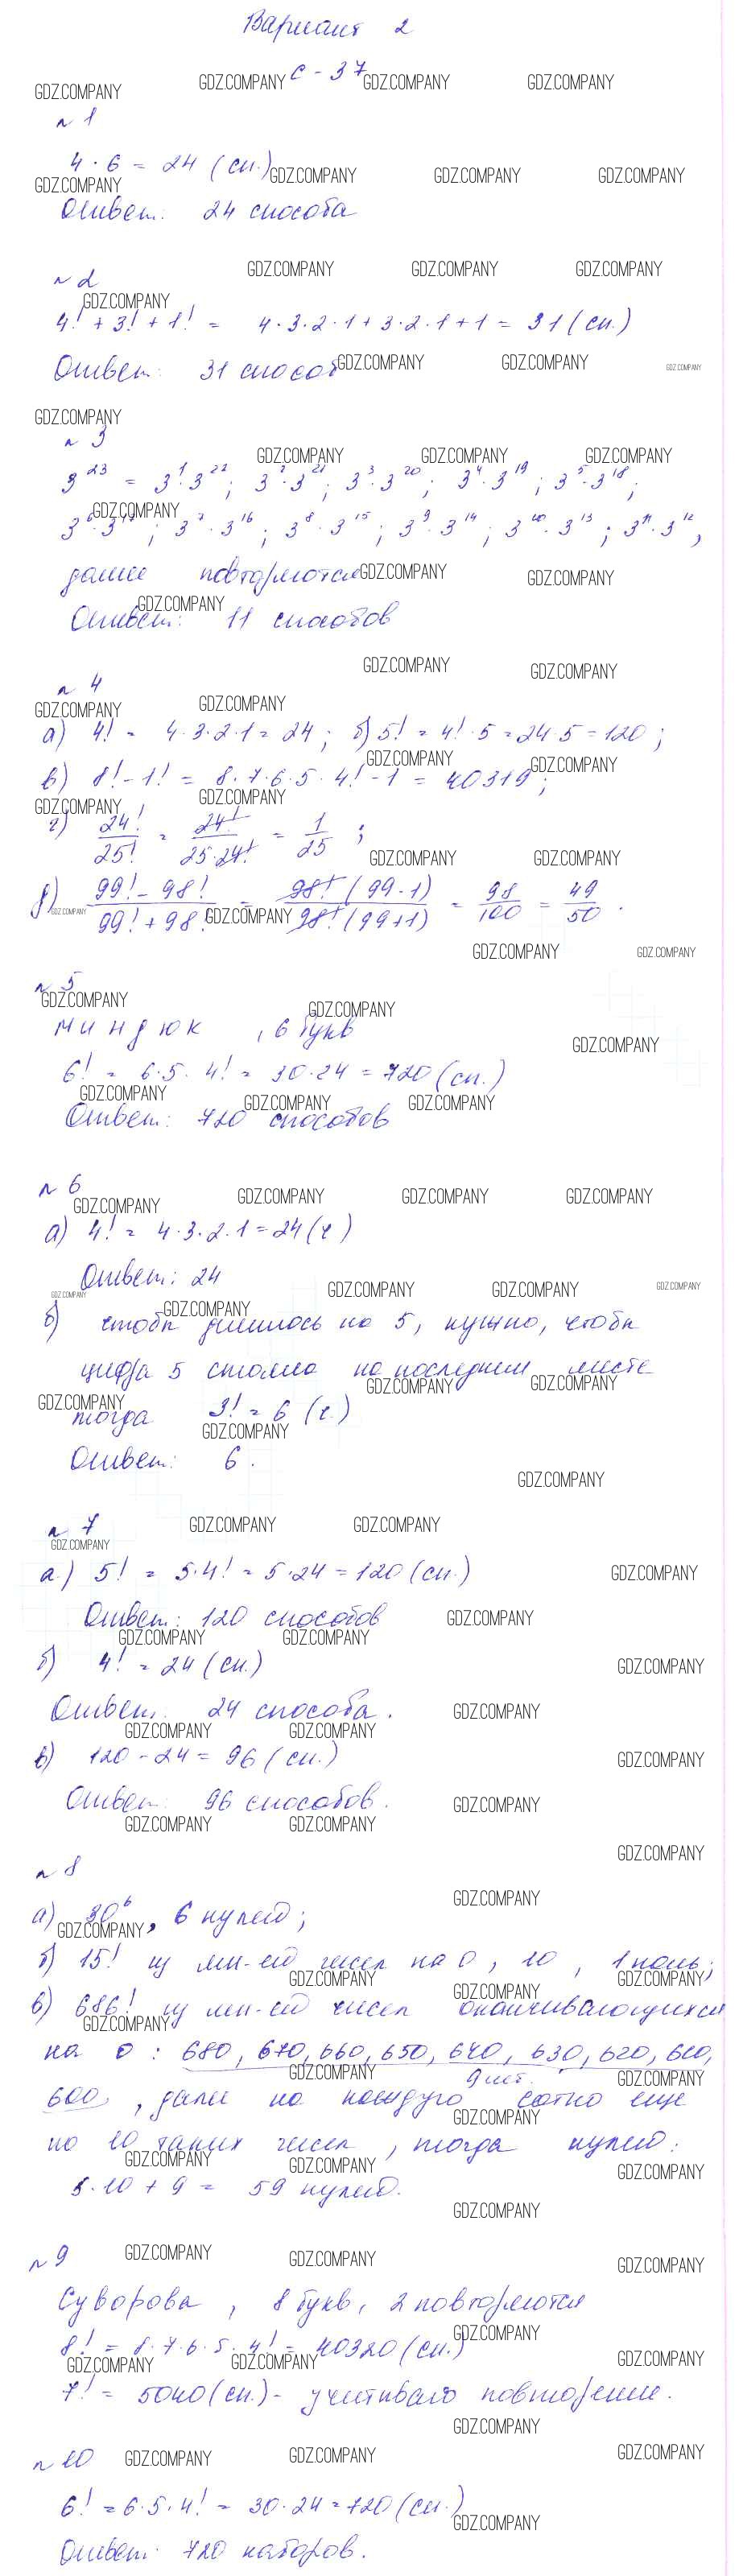 Вариант 2
С-37
GDZ.COMPANY GDZ.COMPANY GDZ.COMPANY GDZ.COMPANY
n 1
4 · 6 = 24 (сп.)
GDZ.COMPANY GDZ.COMPANY GDZ.COMPANY GDZ.COMPANY
Ответ: 24 способа
n 2
GDZ.COMPANY GDZ.COMPANY GDZ.COMPANY
GDZ.COMPANY
4! + 3! + 1! = 4·3·2·1 + 3·2·1 + 1 = 31 (сп.)
Ответ: 31 способ
GDZ.COMPANY GDZ.COMPANY GDZ.COMPANY
GDZ.COMPANY
n 3
GDZ.COMPANY GDZ.COMPANY GDZ.COMPANY
3^23 = 3^1·3^22; 3^2·3^21; 3^3·3^20; 3^4·3^19; 3^5·3^18;
GDZ.COMPANY
3^6·3^17; 3^7·3^16; 3^8·3^15; 3^9·3^14; 3^10·3^13; 3^11·3^12,
далее повторяются
GDZ.COMPANY GDZ.COMPANY
GDZ.COMPANY
Ответ: 11 способов
GDZ.COMPANY GDZ.COMPANY
n 4
GDZ.COMPANY GDZ.COMPANY
а) 4! = 4·3·2·1 = 24; б) 5! = 4!·5 = 24·5 = 120;
GDZ.COMPANY GDZ.COMPANY
в) 8! - 1! = 8·7·6·5·4! - 1 = 40319;
GDZ.COMPANY GDZ.COMPANY
г) 24!/25! = 24!/25·24! = 1/25;
GDZ.COMPANY GDZ.COMPANY
д) 99! - 98!/99! + 98! = 98!(99-1)/98!(99+1) = 98/100 = 49/50.
GDZ.COMPANY GDZ.COMPANY
GDZ.COMPANY GDZ.COMPANY
n 5
GDZ.COMPANY GDZ.COMPANY
миндюк, 6 букв
GDZ.COMPANY
6! = 6·5·4! = 30·24 = 720 (сп.)
GDZ.COMPANY GDZ.COMPANY GDZ.COMPANY
Ответ: 720 способов
n 6
GDZ.COMPANY GDZ.COMPANY GDZ.COMPANY GDZ.COMPANY
а) 4! = 4·3·2·1 = 24 (ч)
Ответ: 24
GDZ.COMPANY GDZ.COMPANY GDZ.COMPANY GDZ.COMPANY
GDZ.COMPANY
б) чтобы делилось на 5, нужно, чтобы
цифра 5 стояла на последнем месте
GDZ.COMPANY GDZ.COMPANY GDZ.COMPANY
тогда 3! = 6 (ч.)
GDZ.COMPANY
Ответ: 6.
GDZ.COMPANY
n 7
GDZ.COMPANY GDZ.COMPANY
GDZ.COMPANY
а) 5! = 5·4! = 5·24 = 120 (сп.)
GDZ.COMPANY
Ответ: 120 способов
GDZ.COMPANY
GDZ.COMPANY GDZ.COMPANY
б) 4! = 24 (сп.)
GDZ.COMPANY
Ответ: 24 способа.
GDZ.COMPANY
GDZ.COMPANY GDZ.COMPANY
в) 120 - 24 = 96 (сп.)
GDZ.COMPANY
Ответ: 96 способов.
GDZ.COMPANY
GDZ.COMPANY GDZ.COMPANY
GDZ.COMPANY
n 8
GDZ.COMPANY
а) 30^6, 6 нулей;
GDZ.COMPANY
б) 15! из мн-ей чисел на 0, 10, 1 ноль;
GDZ.COMPANY GDZ.COMPANY
GDZ.COMPANY
в) 686! из мн-ей чисел оканчивающихся
GDZ.COMPANY
на 0: 680, 670, 660, 650, 640, 630, 620, 610,
GDZ.COMPANY 9 шт. GDZ.COMPANY
600, далее на каждую сотню еще
GDZ.COMPANY
по 10 таких чисел, тогда нулей:
GDZ.COMPANY GDZ.COMPANY GDZ.COMPANY
5·10 + 9 = 59 нулей.
GDZ.COMPANY
n 9
GDZ.COMPANY GDZ.COMPANY GDZ.COMPANY
Суворова, 8 букв, 2 повторяются
GDZ.COMPANY
8! = 8·7·6·5·4! = 40320 (сп.)
GDZ.COMPANY GDZ.COMPANY GDZ.COMPANY
7! = 5040 (сп.) - учитываю повторение.
GDZ.COMPANY
n 10
GDZ.COMPANY GDZ.COMPANY GDZ.COMPANY
6! = 6·5·4! = 30·24 = 720 (сп.)
GDZ.COMPANY
Ответ: 720 наборов.